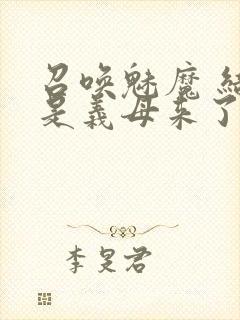 召唤魅魔 结
是义母来了
李旻君